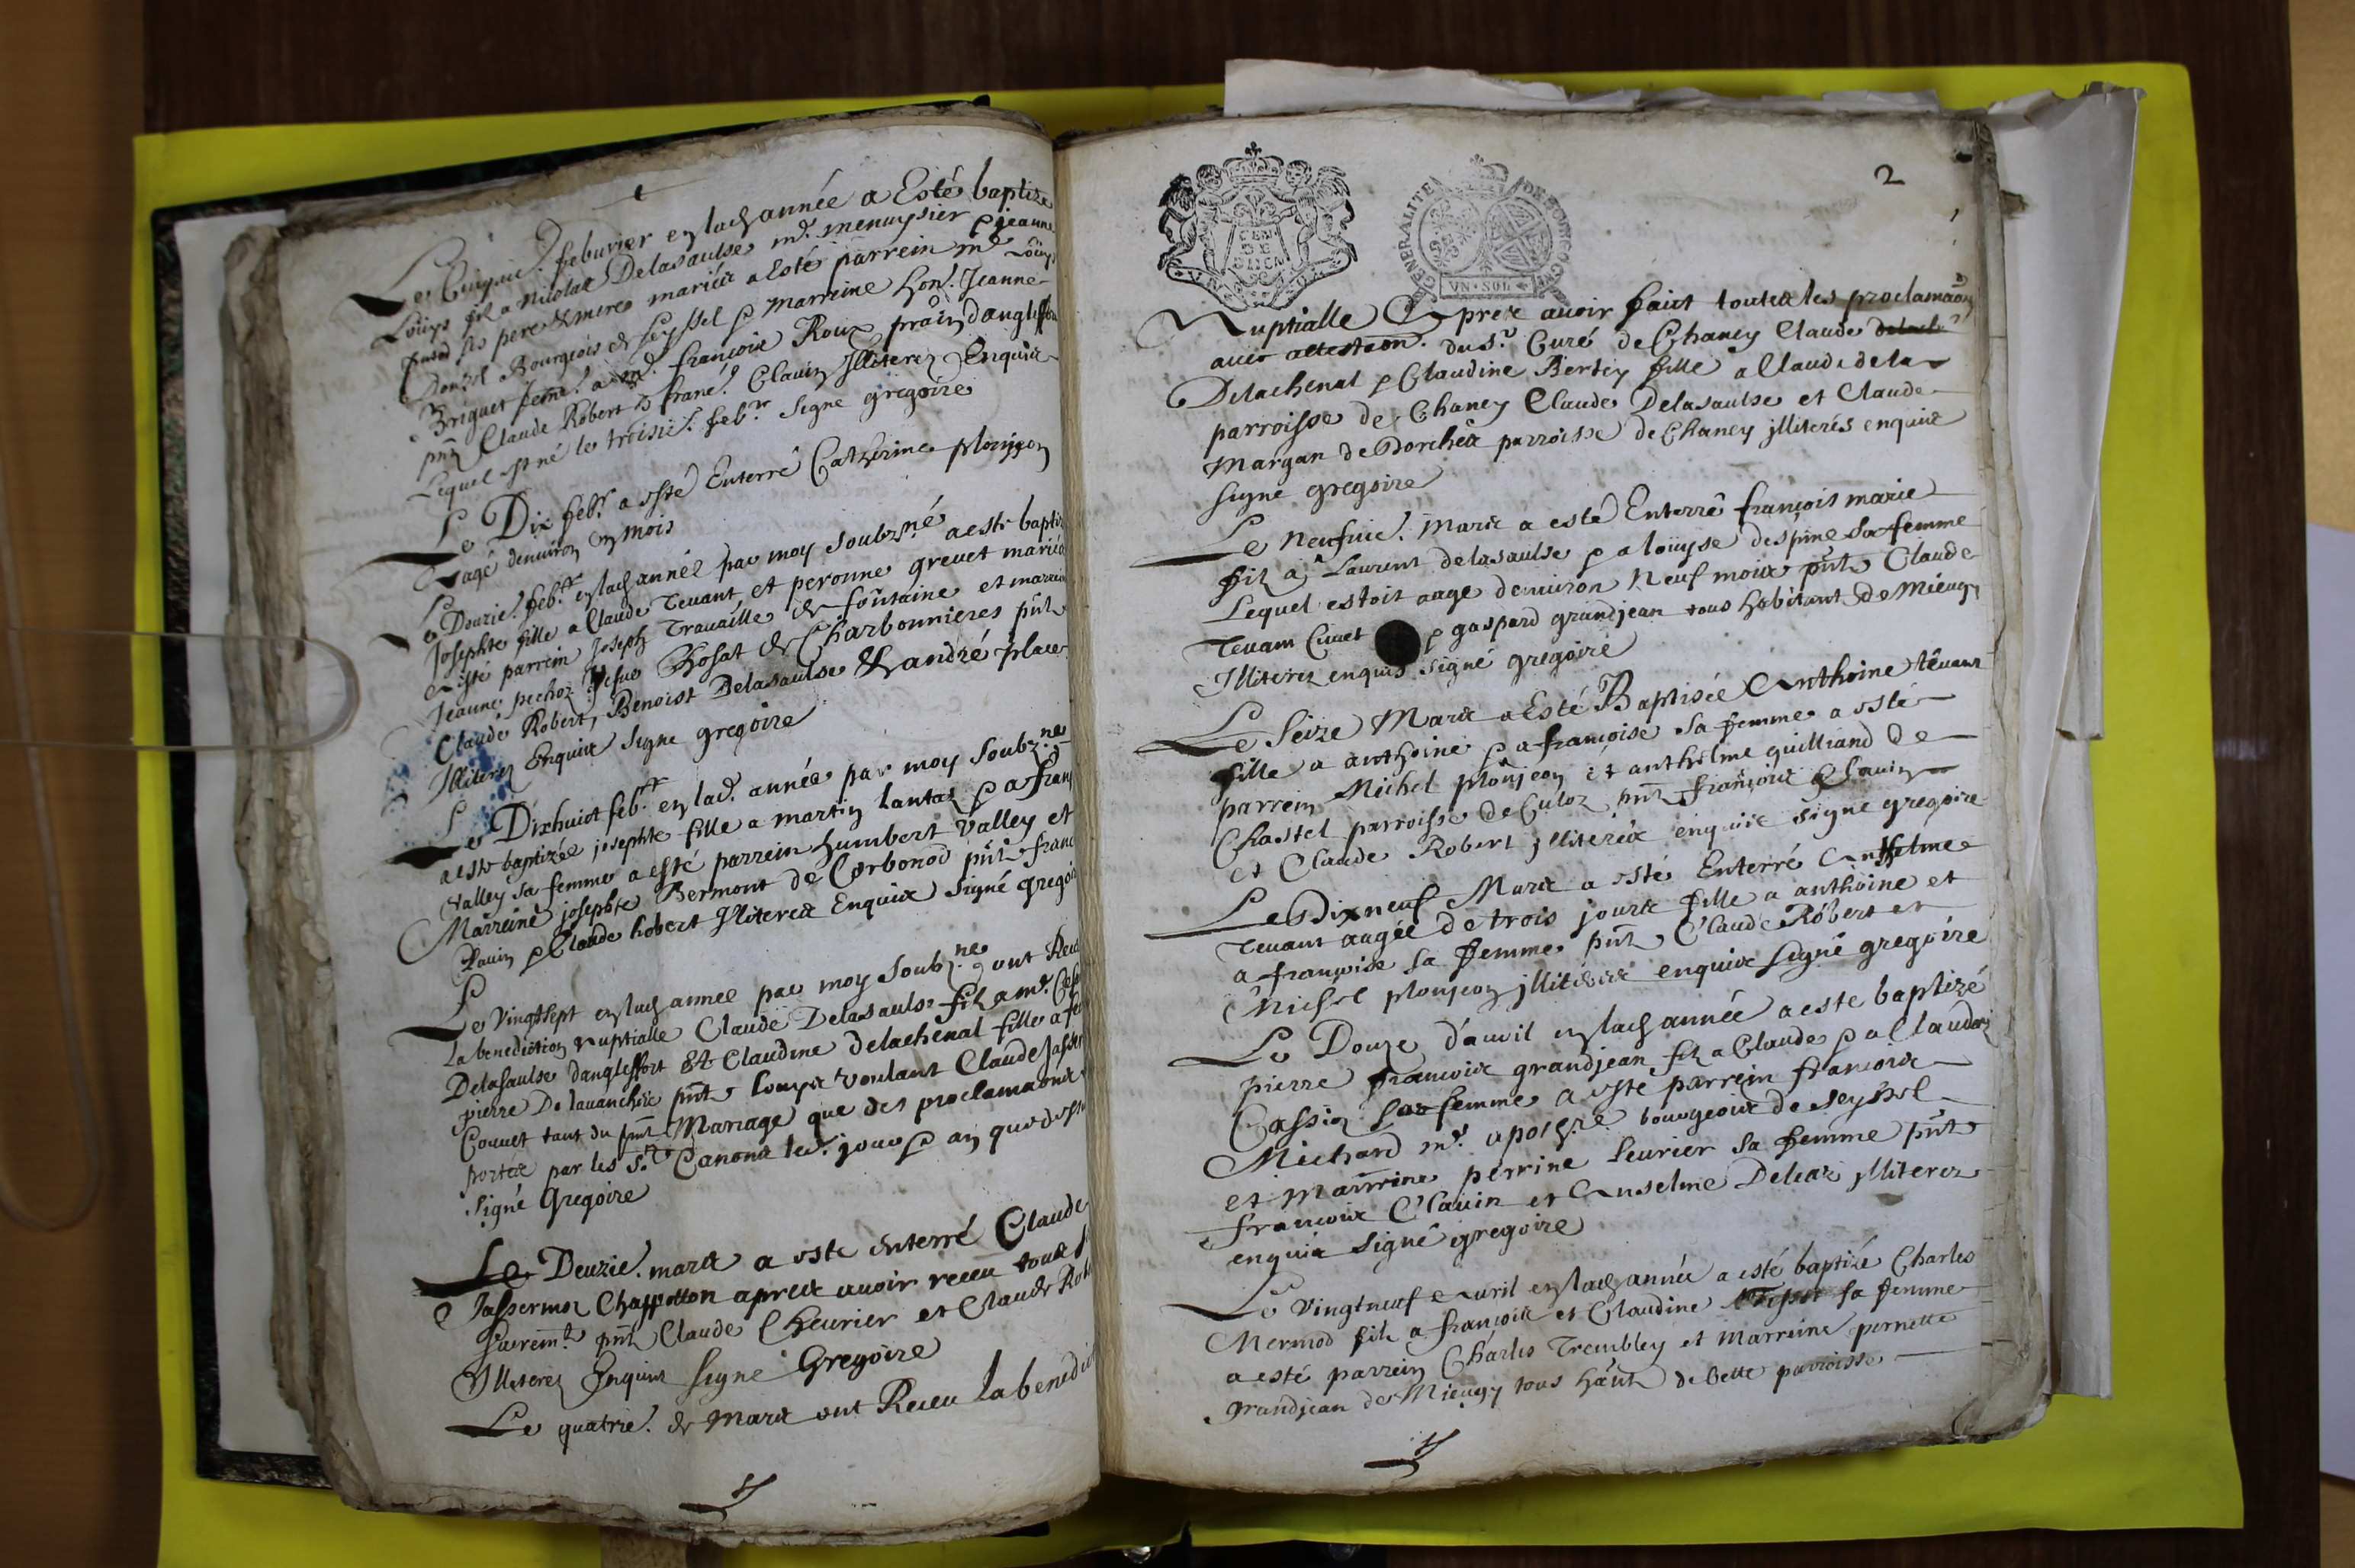 Le Cinquie. feburier en lad année a Esté baptizé
Louys fil a Nicolas Delasaulse md. menuysier & jeanne
ses pere & mere mariés a Esté parrein md Louys
Bourgeois de Seyssel & Marreine hon. Jeanne
Briguet feme. a md. françois Roux dangleffort
pnts Claude Robert & franc. Clauin Illiterez Enquis
Lequel est né le troisie. febr. Signe gregoire
Le Dix febr. a esté Enterré Catherine ploujeon
agé denuiron un mois
Le Douzie. febr. en lad année par moy soubzné a esté baptizé
Josephte fille a Claude Teuant et peronne greuet mariés
a esté parrein Joseph Trauaille de fontaine et marreine
Jeanne pechoz Rosat de Charbonnieres pnts
Claude Robert, Benoist Delasaulse & andré place
Illiterez Enquis Signe gregoire
Le Dixhuict febr. en lad. année par moy soubz.né
a esté baptizée josephte fille a martin lantaz & a fran
Valley sa femme a esté parrein humbert Valley et
Marreine josephte Bermont de Corbonod pnts franc
Clauin & Claude Robert Illiterez Enquis Signé grego
Le Vingtsept en lad année par moy soubz.né ont Receu
la benediction nuptialle Claude Delasaulse filz a md.
Delasaulse dangleffort & Claudine delachenal fille a
pierre De lauanchire pnts Louys Voulant Claude Jasser
Couuet tant du pnt Mariage que des proclamaons
portés par les st. Canons led. jour & an que dess
Signé Gregoire
Le Deuzie. mars a esté enterré Claude
Jassermoz Chappotton apres auoir receu tous
Sacremts. pnts Claude Cheurier et Claude Rob
Illiterez Enquis Signe Gregoire
Le quatrie. de Mars ont Receu La benedict
2
GENERALITE DE BOURGOGNE
VN·SOL
Nuptialle Apres auoir faict touttes les proclamaons
auec attestaon. du sr. Curé de Chaney Claude
Delachenal & Claudine Bertin fille a Claude de la
parroisse de Chaney Claude Delasaulse et Claude
Margan de Dorches parroisse de Chaney jlliterés enquis
Signe gregoire
Le Neufuie. Mars a esté Enterré françois marie
filz a Laurent delasaulse & a louyse despine sa femme
Lequel estoit aage denuiron Neuf mois pnts Claude
Teuam Cuuet & gaspard grandjean tous habitant de Mieugy
Illiterez enquis Signé gregoire
Le Seize Mars a Esté Baptisée Anthoine teuant
fille a anthoine & a françoise sa femme a esté
parrein Michel ploujeon et anthelme quilliand de
Chastel parroisse de Culoz pnts françois Clauin
et Claude Robert jlliterés enquis Signe gregoire
Le Dixneuf Mars a esté Enterré Anthelme
Teuant aagée de trois jours fille a anthoine et
a françoise sa femme pnts Claude Robert et
Michel ploujeon jlliterés enquis Signé gregoire
Le Douze dauril en lad année a este baptizé
pierre françois grandjean filz a Claude & a Claudaz
Cassin sa femme a este parrein françois
Michard md. apot.re bourgeois de seyssel
et Marreine perrine Seurier sa femme pnts
françois Clauin et Anselme Deleaz jlliterez
enquis Signé gregoire
Le Vingtneuf auril en lad année a esté baptizé Charles
Mermod filz a françois et Claudine sa femme
a esté parrein Charles Trembley et Marreine pernette
grandjean de Mieugy tous habnts de Cette parroisse